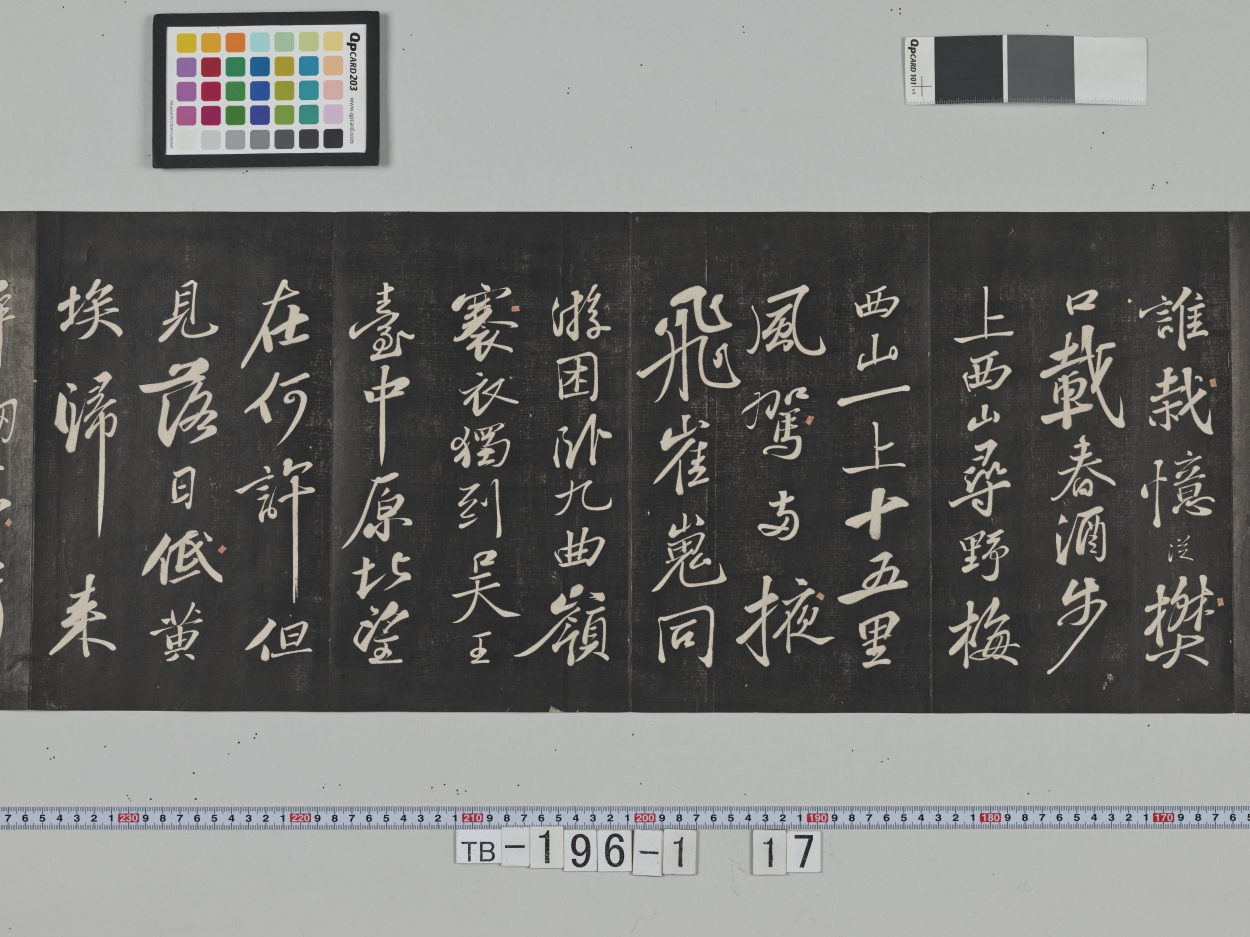 誰栽憶從樊
口載春酒步
上西山尋野梅
西山一上十五里
風駕兩掖
飛崔嵬同
游困臥九曲嶺
褰衣獨到吳王
臺中原北望
在何許但
見落日低黄
埃歸来
QpCARD 203
www.qpcard.com
QpCARD 101
TB-196-1 17
7 6 5 4 3 2 1 230 9 8 7 6 5 4 3 2 1 220 9 8 7 6 5 4 3 2 1 210 9 8 7 6 5 4 3 2 1 200 9 8 7 6 5 4 3 2 1 190 9 8 7 6 5 4 3 2 1 180 9 8 7 6 5 4 3 2 1 170 9 8 7 6